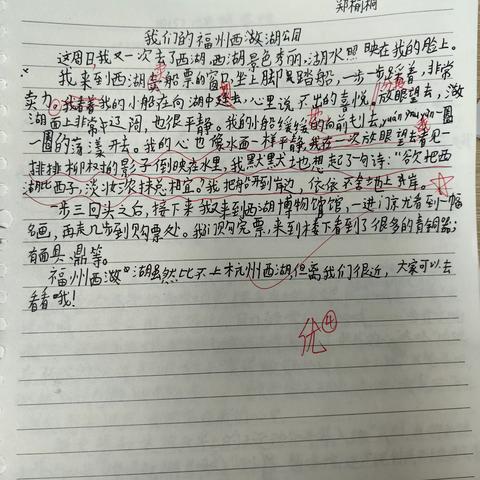 郑榆桐
我们的福州西湖公园
这周日我又一次去了西湖,西湖景色秀丽,湖水照映在我的脸上。
我来到西湖卖船票的窗口,坐上脚踏船,一步一步踩着,非常
卖力。我看着我的小船在向湖中,心里说不出的喜悦。放眼望去,
湖面上非常辽阔,也很平静。我的小船缓缓的向前走去,yuán yuán一圈
一圈的荡漾开去。我的心也像水面一样平静,我在一次放眼望去看见一
排排柳树的影子倒映在水里,我默默地想起了句诗:“欲把西
湖比西子,淡妆浓抹总相宜。”我把船开到岸边,依依不舍踏上岸。
一步三回头之后,接下来我又来到西湖博物馆,一进门就看到一幅
画,再走几步到购票处。我们购完票,来到楼下看到了很多的青铜器;
有面具、鼎等。
福州西湖虽然比不上杭州西湖,但离我们很近,大家可以去
看看哦!
优④